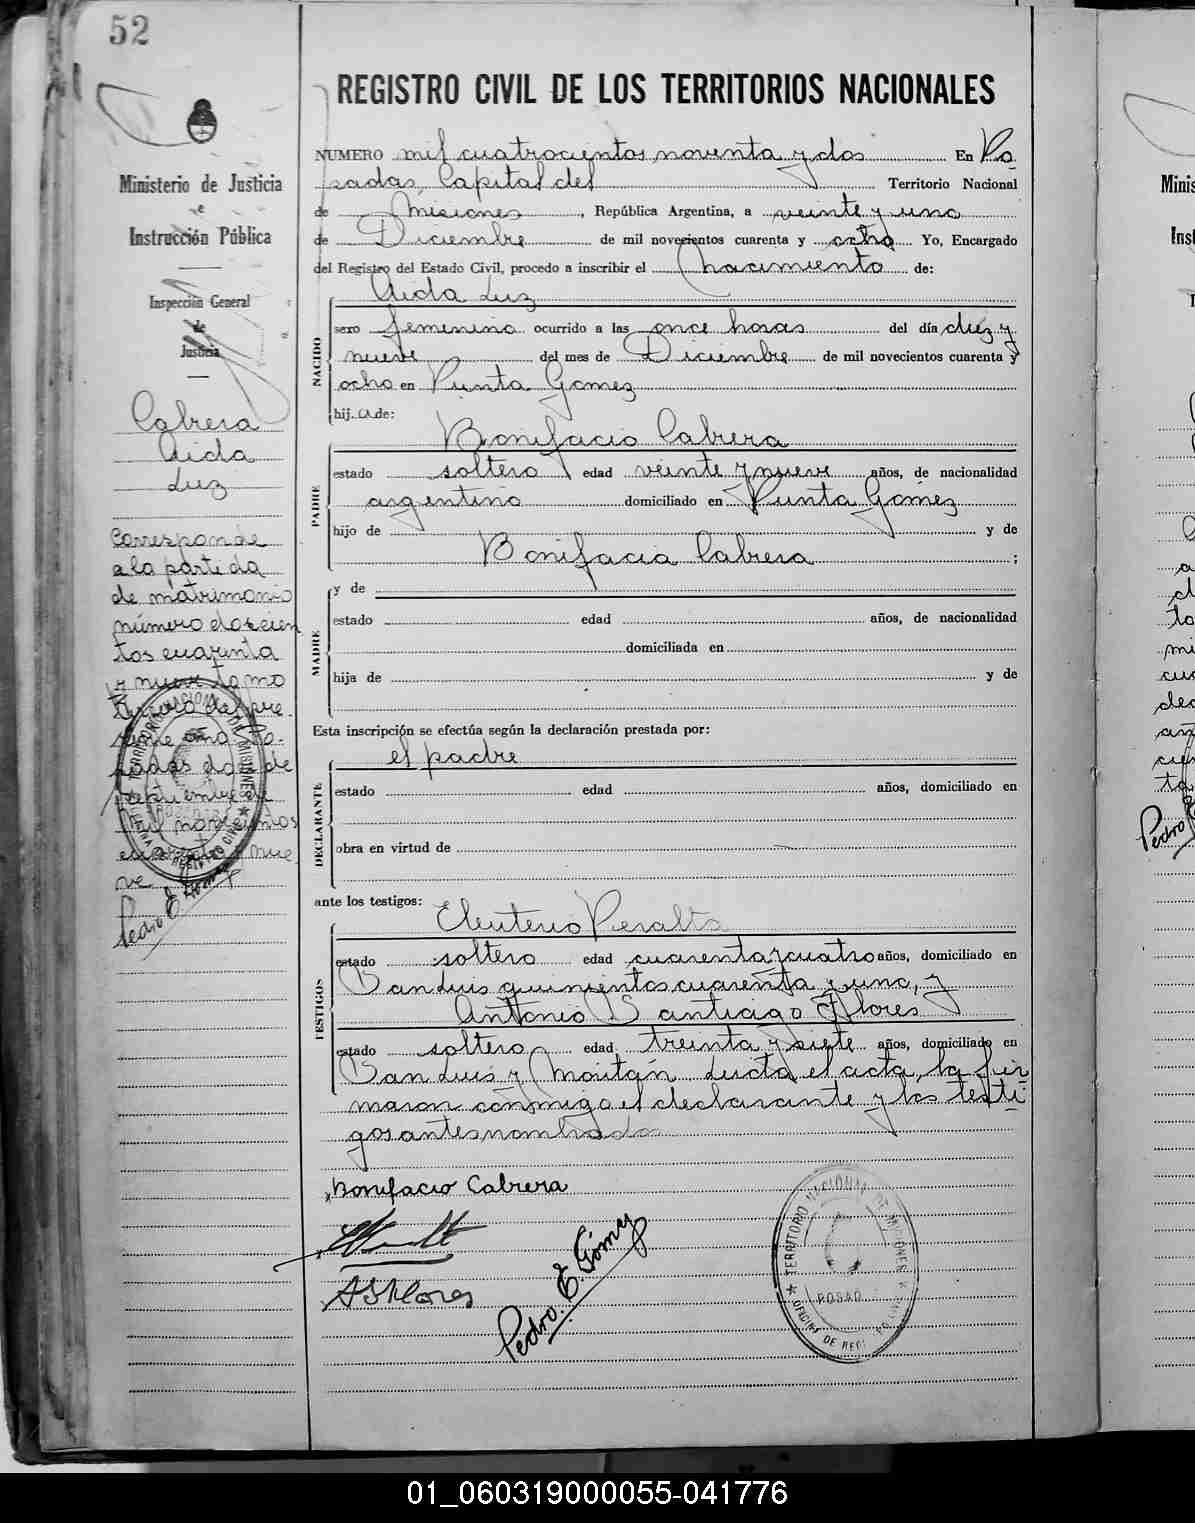 52
REGISTRO CIVIL DE LOS TERRITORIOS NACIONALES
Ministerio de Justicia
e
Instrucción Pública
Inspección General
de
Justicia
Cabrera
Aida
Luz
Corresponde
a la partida
de matrimonio
número doscien
tos cuarenta
y nueve tomo
del pre-
sente año Po-
sadas dos de
septiembre de
mil novecientos
cuarenta y nue
ve
Pedro E. Gómez
NUMERO mil cuatrocientos noventa y dos En Po
sadas, Capital del Territorio Nacional
de Misiones, República Argentina, a veinte y uno
de Diciembre de mil novecientos cuarenta y ocho Yo, Encargado
del Registro del Estado Civil, procedo a inscribir el nacimiento de:
Aida Luz
NACIDO
sexo femenino ocurrido a las once horas del día diez y
nueve del mes de Diciembre de mil novecientos cuarenta y
ocho en Punta Gomez
hij.a de:
Bonifacio Cabrera
PADRE
estado soltero edad veinte y nueve años, de nacionalidad
argentino domiciliado en Punta Gómez
hijo de y de
Bonifacia Cabrera ;
y de
MADRE
estado edad años, de nacionalidad
domiciliada en
hija de y de
Esta inscripción se efectúa según la declaración prestada por:
el padre
DECLARANTE
estado edad años, domiciliado en
obra en virtud de
ante los testigos:
Eleuterio Peralta
TESTIGOS
estado soltero edad cuarenta y cuatro años, domiciliado en
San Luis quinientos cuarenta y uno, y
Antonio Santiago Flores
estado soltero edad treinta y siete años, domiciliado en
San Luis y Moitán Leida el acta, la fir
maron conmigo el declarante y los testi
gos antes nombrados
Bonifacio Cabrera
A S Flores
Pedro. E. Gómez
TERRITORIO NACIONAL DE MISIONES
POSAD
OFICINA DE REGISTRO CIVIL
Minis
Inst
Pedro
01_060319000055-041776